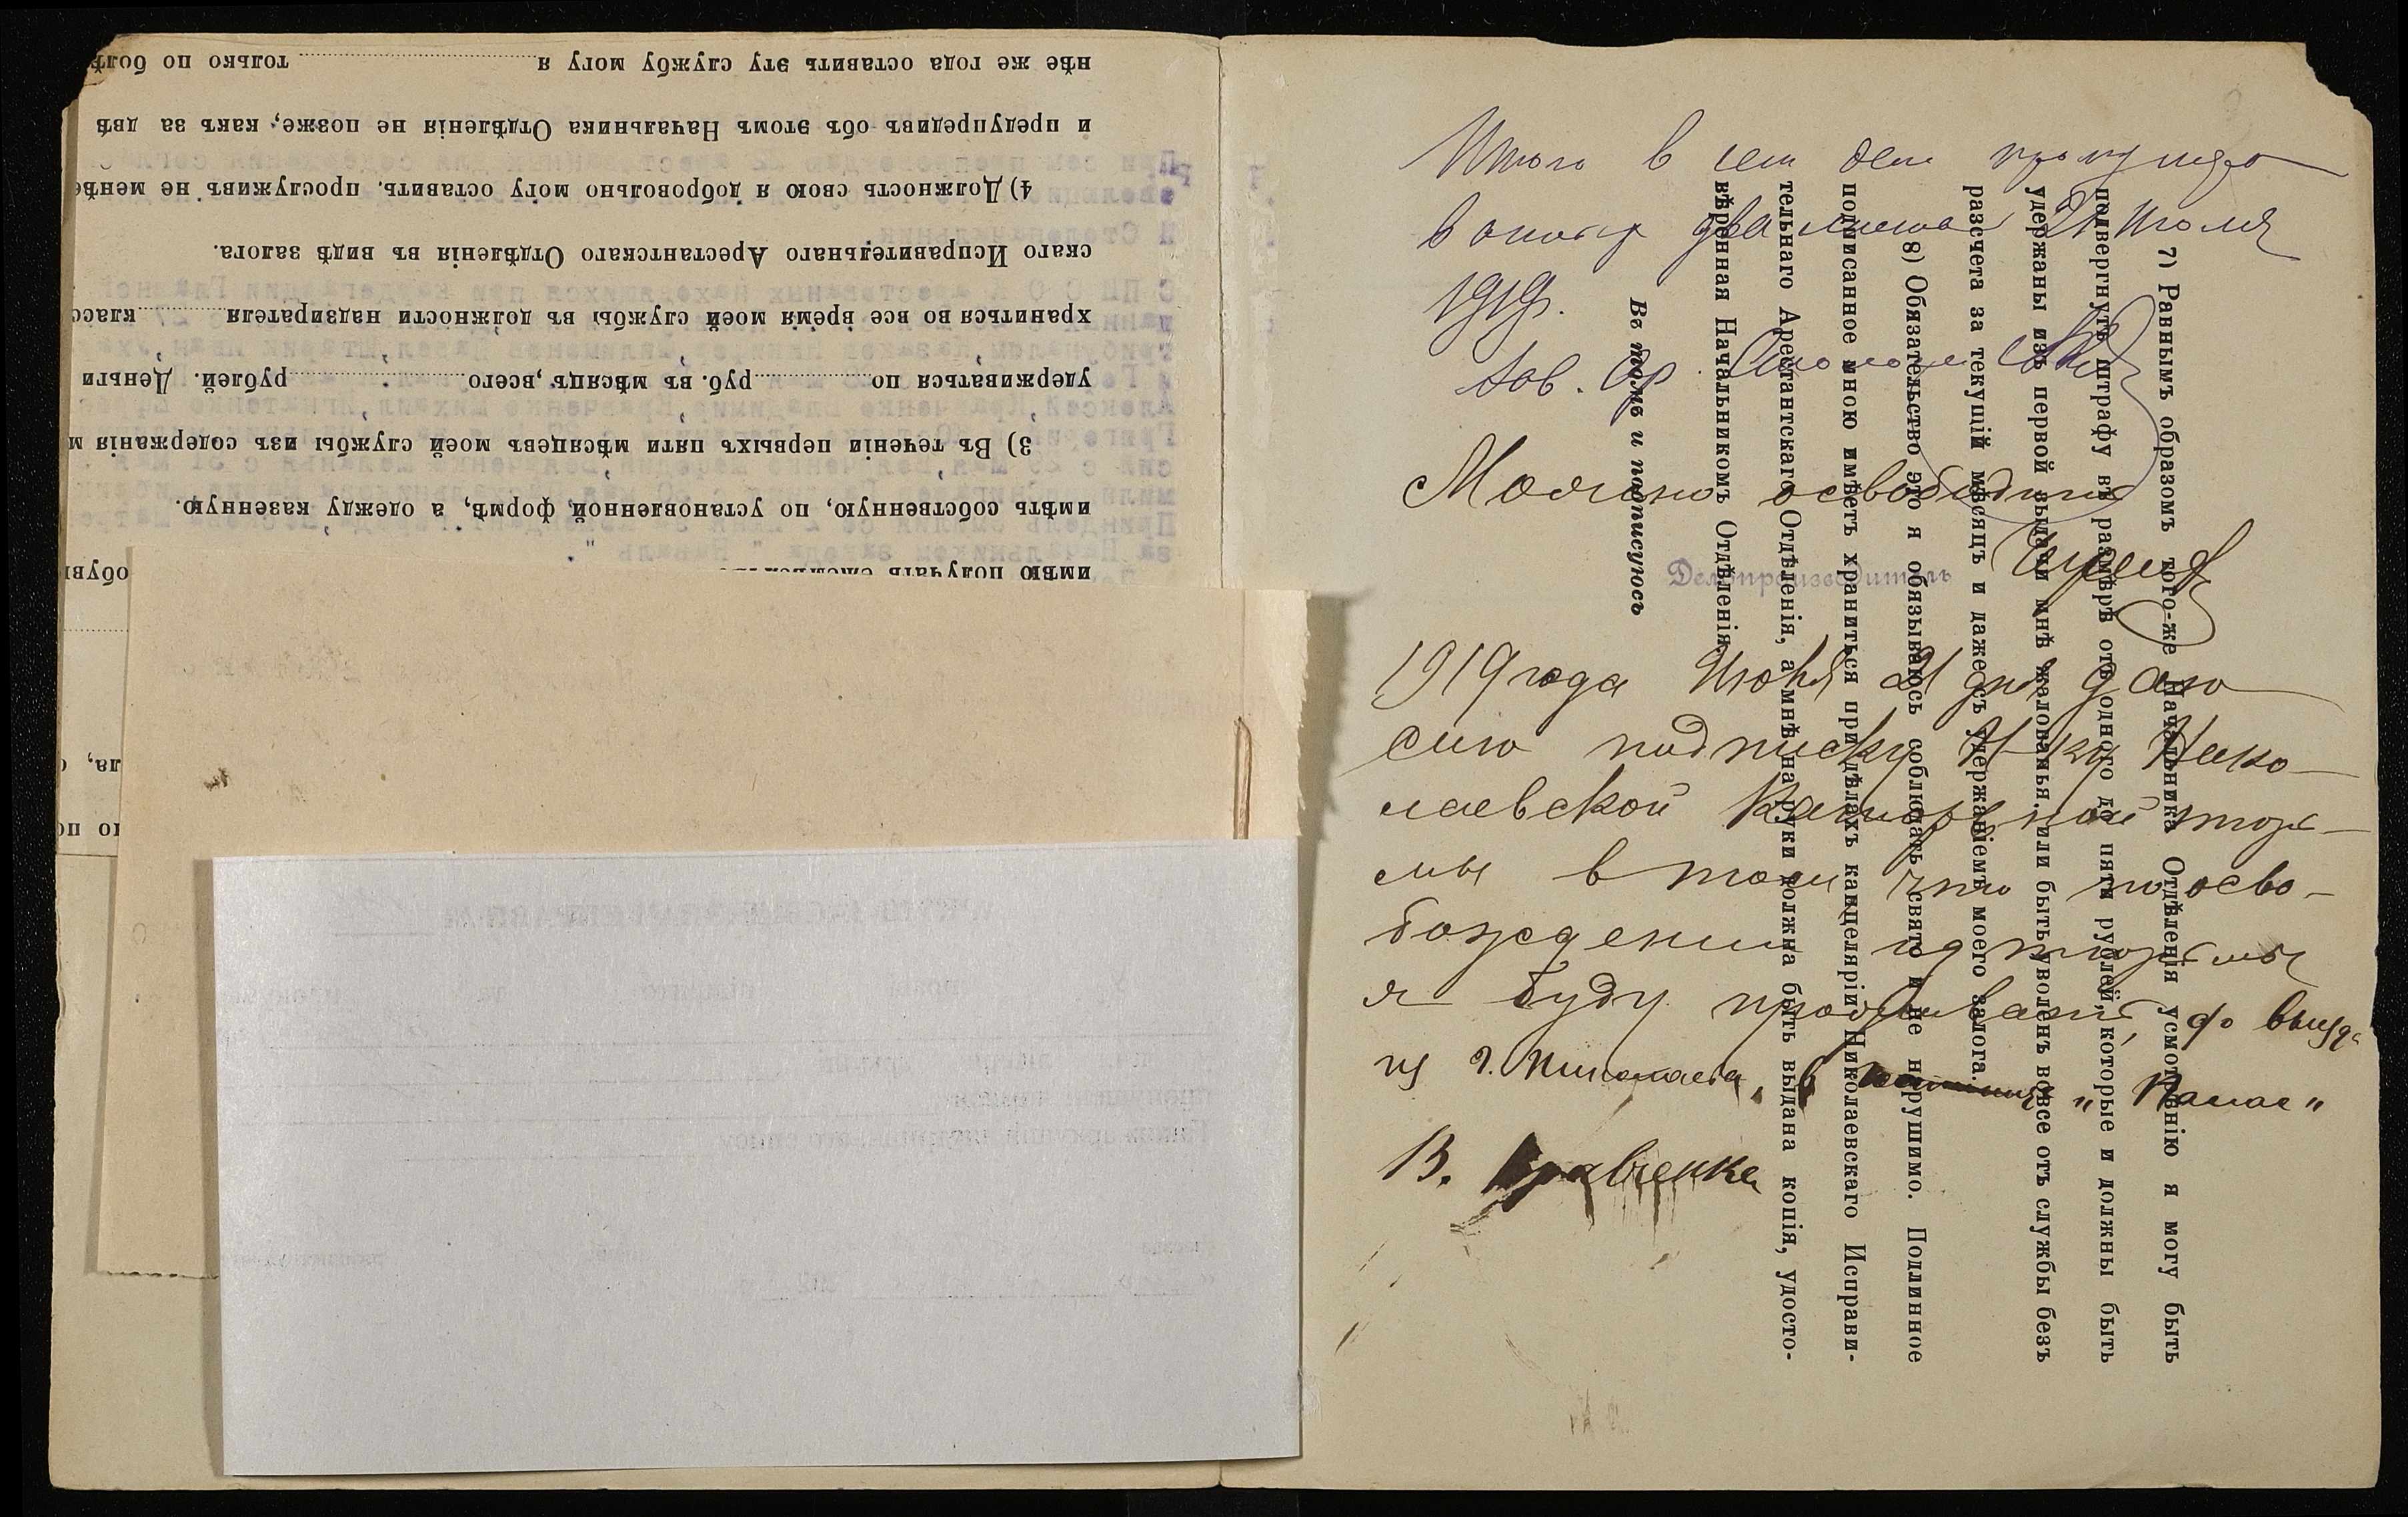 имѣю получать
имѣть собственную, по установленной, формѣ, а одежду казенную.
3) Въ теченіи первыхъ пяти мѣсяцевъ моей службы изъ содержанія м
удерживаться по руб. въ мѣсяцъ, всего рублей. Деньги
храниться во все время моей службы въ должности надзирателя класс
скаго Исправительнаго Арестантскаго Отдѣленія въ видѣ залога.
4) Должность свою я добровольно могу оставить, прослуживъ не менѣе
и предупредивъ объ этомъ Начальника Отдѣленія не позже, какъ за двѣ
нѣе же года оставить эту службу могу я только по болѣ
обуви
7) Равнымъ образомъ того-же Начальника Отдѣленія усмотрѣнію я могу быть
подвергнутъ штрафу въ размѣрѣ отъ одного до пяти рублей, которые и должны быть
удержаны изъ первой выдачи мнѣ жалованья, или быть уволенъ вовсе отъ службы безъ
разсчета за текущій мѣсяцъ и даже съ удержаніемъ моего залога.
8) Обязательство это я обязываюсь соблюдать свято и не нарушимо. Подлинное
подписанное мною имѣетъ храниться при дѣлахъ канцеляріи Николаевскаго Исправи-
тельнаго Арестантскаго Отдѣленія, а мнѣ на руки должна быть выдана копія, удосто-
вѣренная Начальникомъ Отдѣленія.
Въ томъ и подписуюсь
Итого в сем деле
два листа 21 Июля
1919г.
Можно освободить
Делопроизводитель
1919 года Июня 21 дня даю
сию подписку Н-ку Нико-
лаевской Каторжной тюрь-
мы в том что по осво-
бождении из тюрьмы
я буду проживать, до выезда
из г. Николаева, в
В. Кравченко